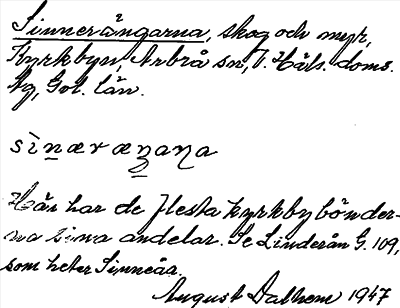 Sinnerängarna, skog och myr,
Kyrkbyn, Arbrå sn, V. Häls. doms.
Gol. län.
Här har de flesta kyrkbybönder-
na sina andelar. Se Linderån G. 109,
som heter Sinneåa.
August Dalhem 1947